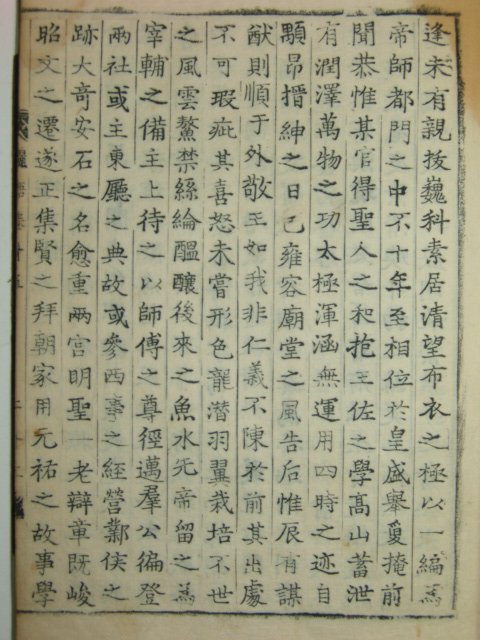 逢未有親擢巍科素居清望布衣之極以一編為
帝師都門之中不十年至相位於皇盛舉夐掩前
聞恭惟某官得聖人之和抱王佐之學高山蓄泄
有潤澤萬物之功太極渾涵無運用四時之迹自
顒昂搢紳之日已雍容廟堂之風告后惟辰有謀
猷則順于外敬王如我非仁義不陳於前其出處
不可瑕疵其喜怒未嘗形色龍潛羽翼栽培不世
之風雲鰲禁絲綸醞釀後來之魚水先帝留之為
宰輔之備主上待之以師傅之尊徑邁羣公徧登
兩社或主東廳之典故或參西事之經營鄴侯之
跡大奇安石之名愈重兩宮明聖一老辯章既峻
昭文之遷遂正集賢之拜朝家用元祐之故事學